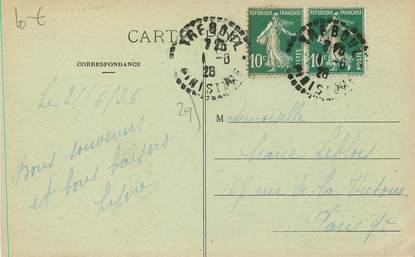 10 €
CARTE
CORRESPONDANCE
TREBOUL
7 25
1 -6
26
FINISTERE
REPUBLIQUE FRANÇAISE
10c
POSTES
REPUBLIQUE FRANÇAISE
10c
POSTES
TREBOUL
-6
26
FINISTERE
Le 2/6/26
29)
Bons souvenirs
et bons baisers
Sylvie
Mademoiselle
Leblois
67 rue de la Victoire
Paris 9e